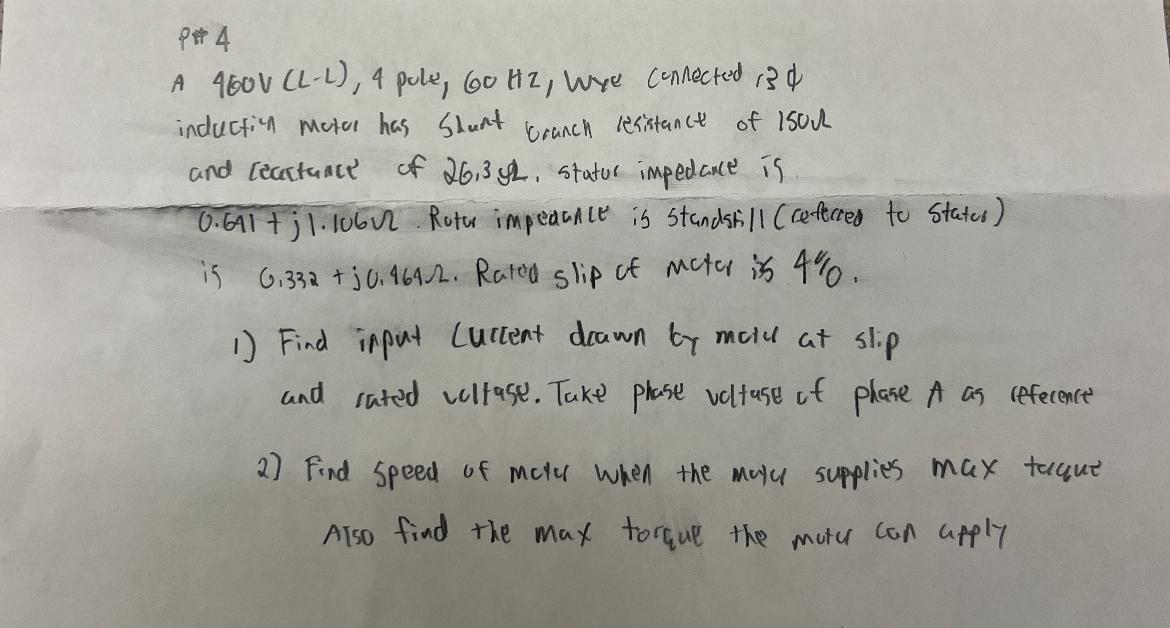 P# 4
A 460V (L-L), 4 pole, 60 HZ, Wye connected, 3 ф
induction motor has shunt branch resistance of 150Ω
and reactance of 26.3 Ω. stator impedance is
0.641 + j1.106Ω. Rotor impedance is standstill (referred to stator)
is 0.332 + j0.464Ω. Rated slip of motor is 4%.
1) Find input current drawn by motor at slip
and rated voltage. Take phase voltage of phase A as reference
2) Find speed of motor when the motor supplies max torque
Also find the max torque the motor can apply